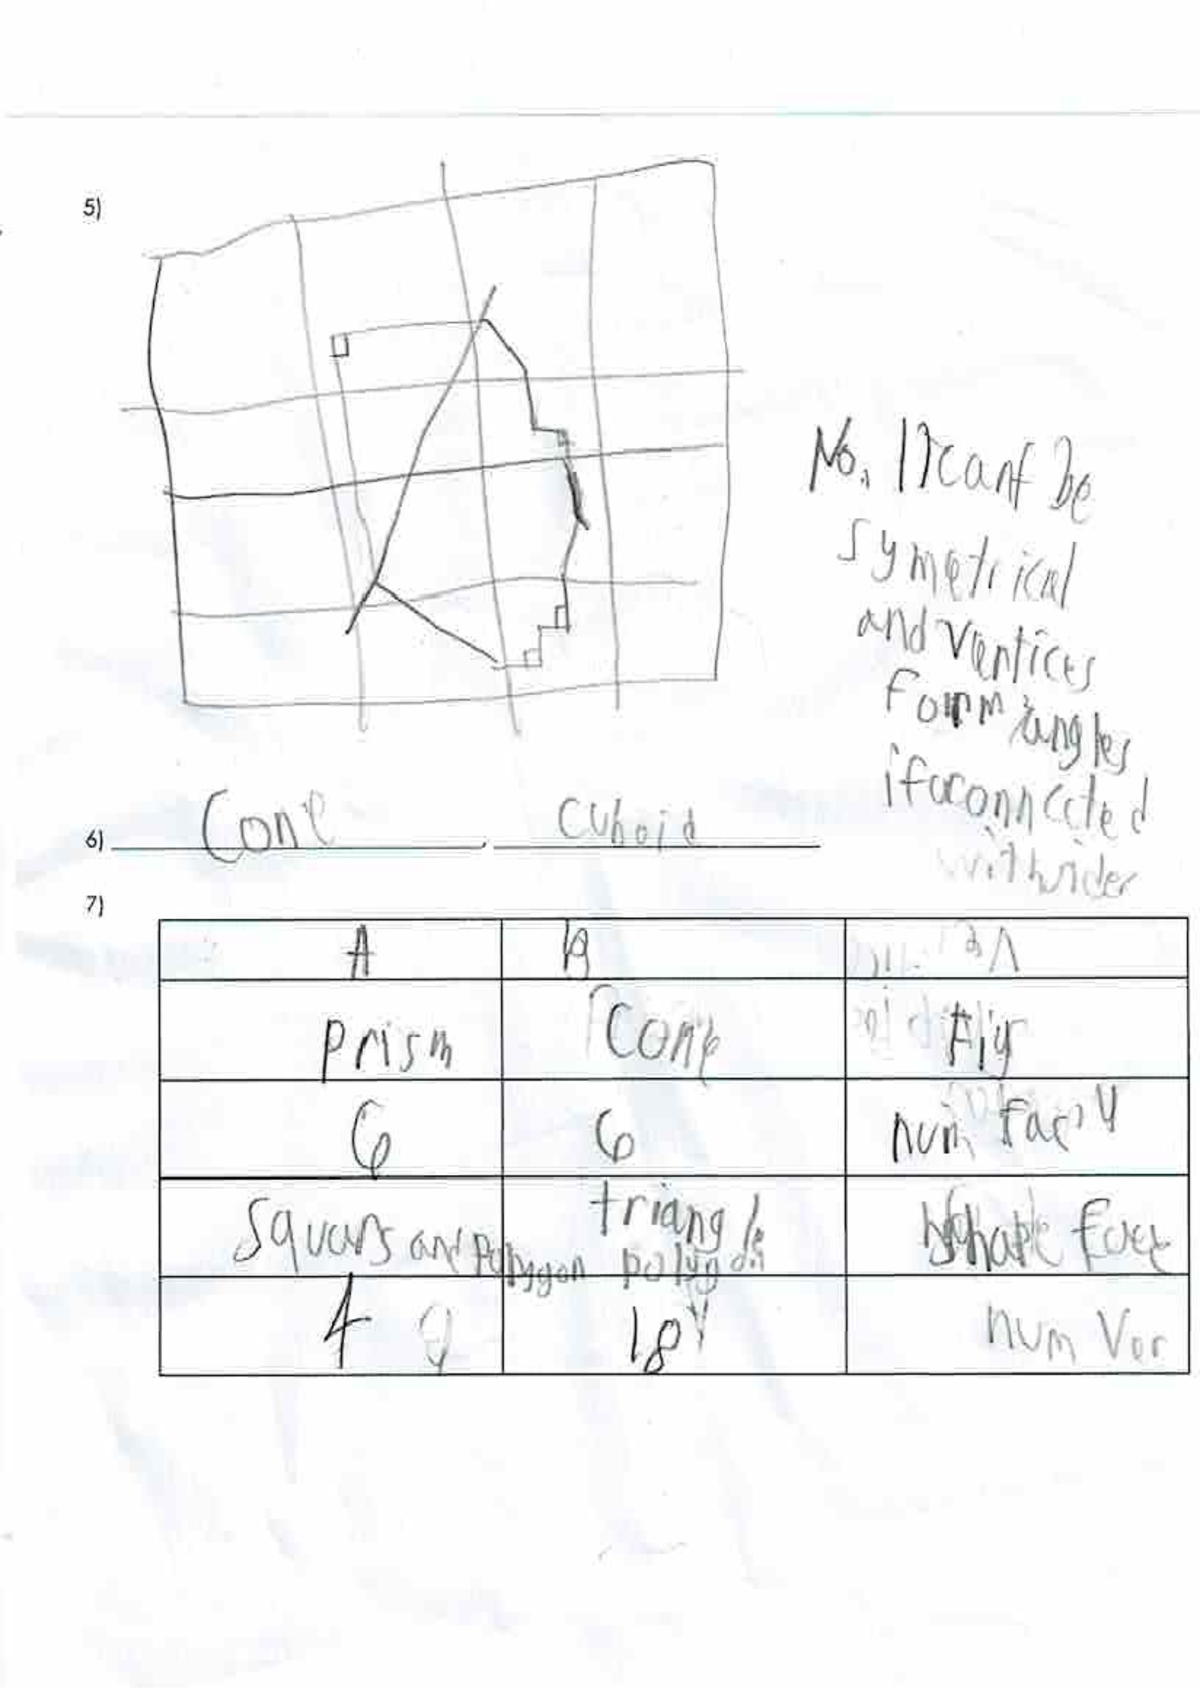 5)
No. It canf be
symetrical
and vertices
Form angles
connected
6) Cone , cuboid
7)
A B
prism Cone Fig
6 6 num
Squars and Polygon triangle polygon shape Face
4 18 num Ver